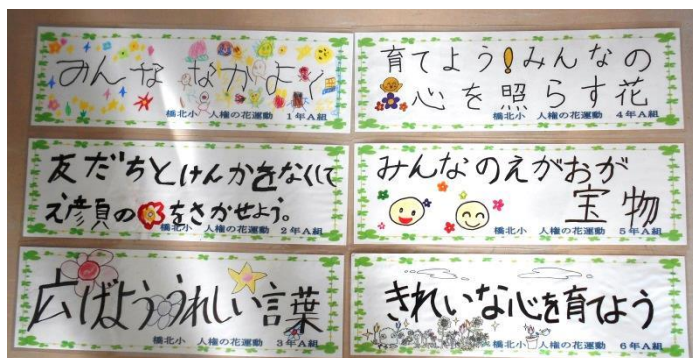 みんな なかよく
橋北小 人権の花運動 1年A組
友だちとけんかをなくして
え顔の をさかせよう。
橋北小 人権の花運動 2年A組
広ばよううれしい言葉
橋北小 人権の花運動 3年A組
育てよう!みんなの
心を照らす花
橋北小 人権の花運動 4年A組
みんなのえがおが
宝物
橋北小 人権の花運動 5年A組
きれいな心を育てよう
橋北小 人権の花運動 6年A組